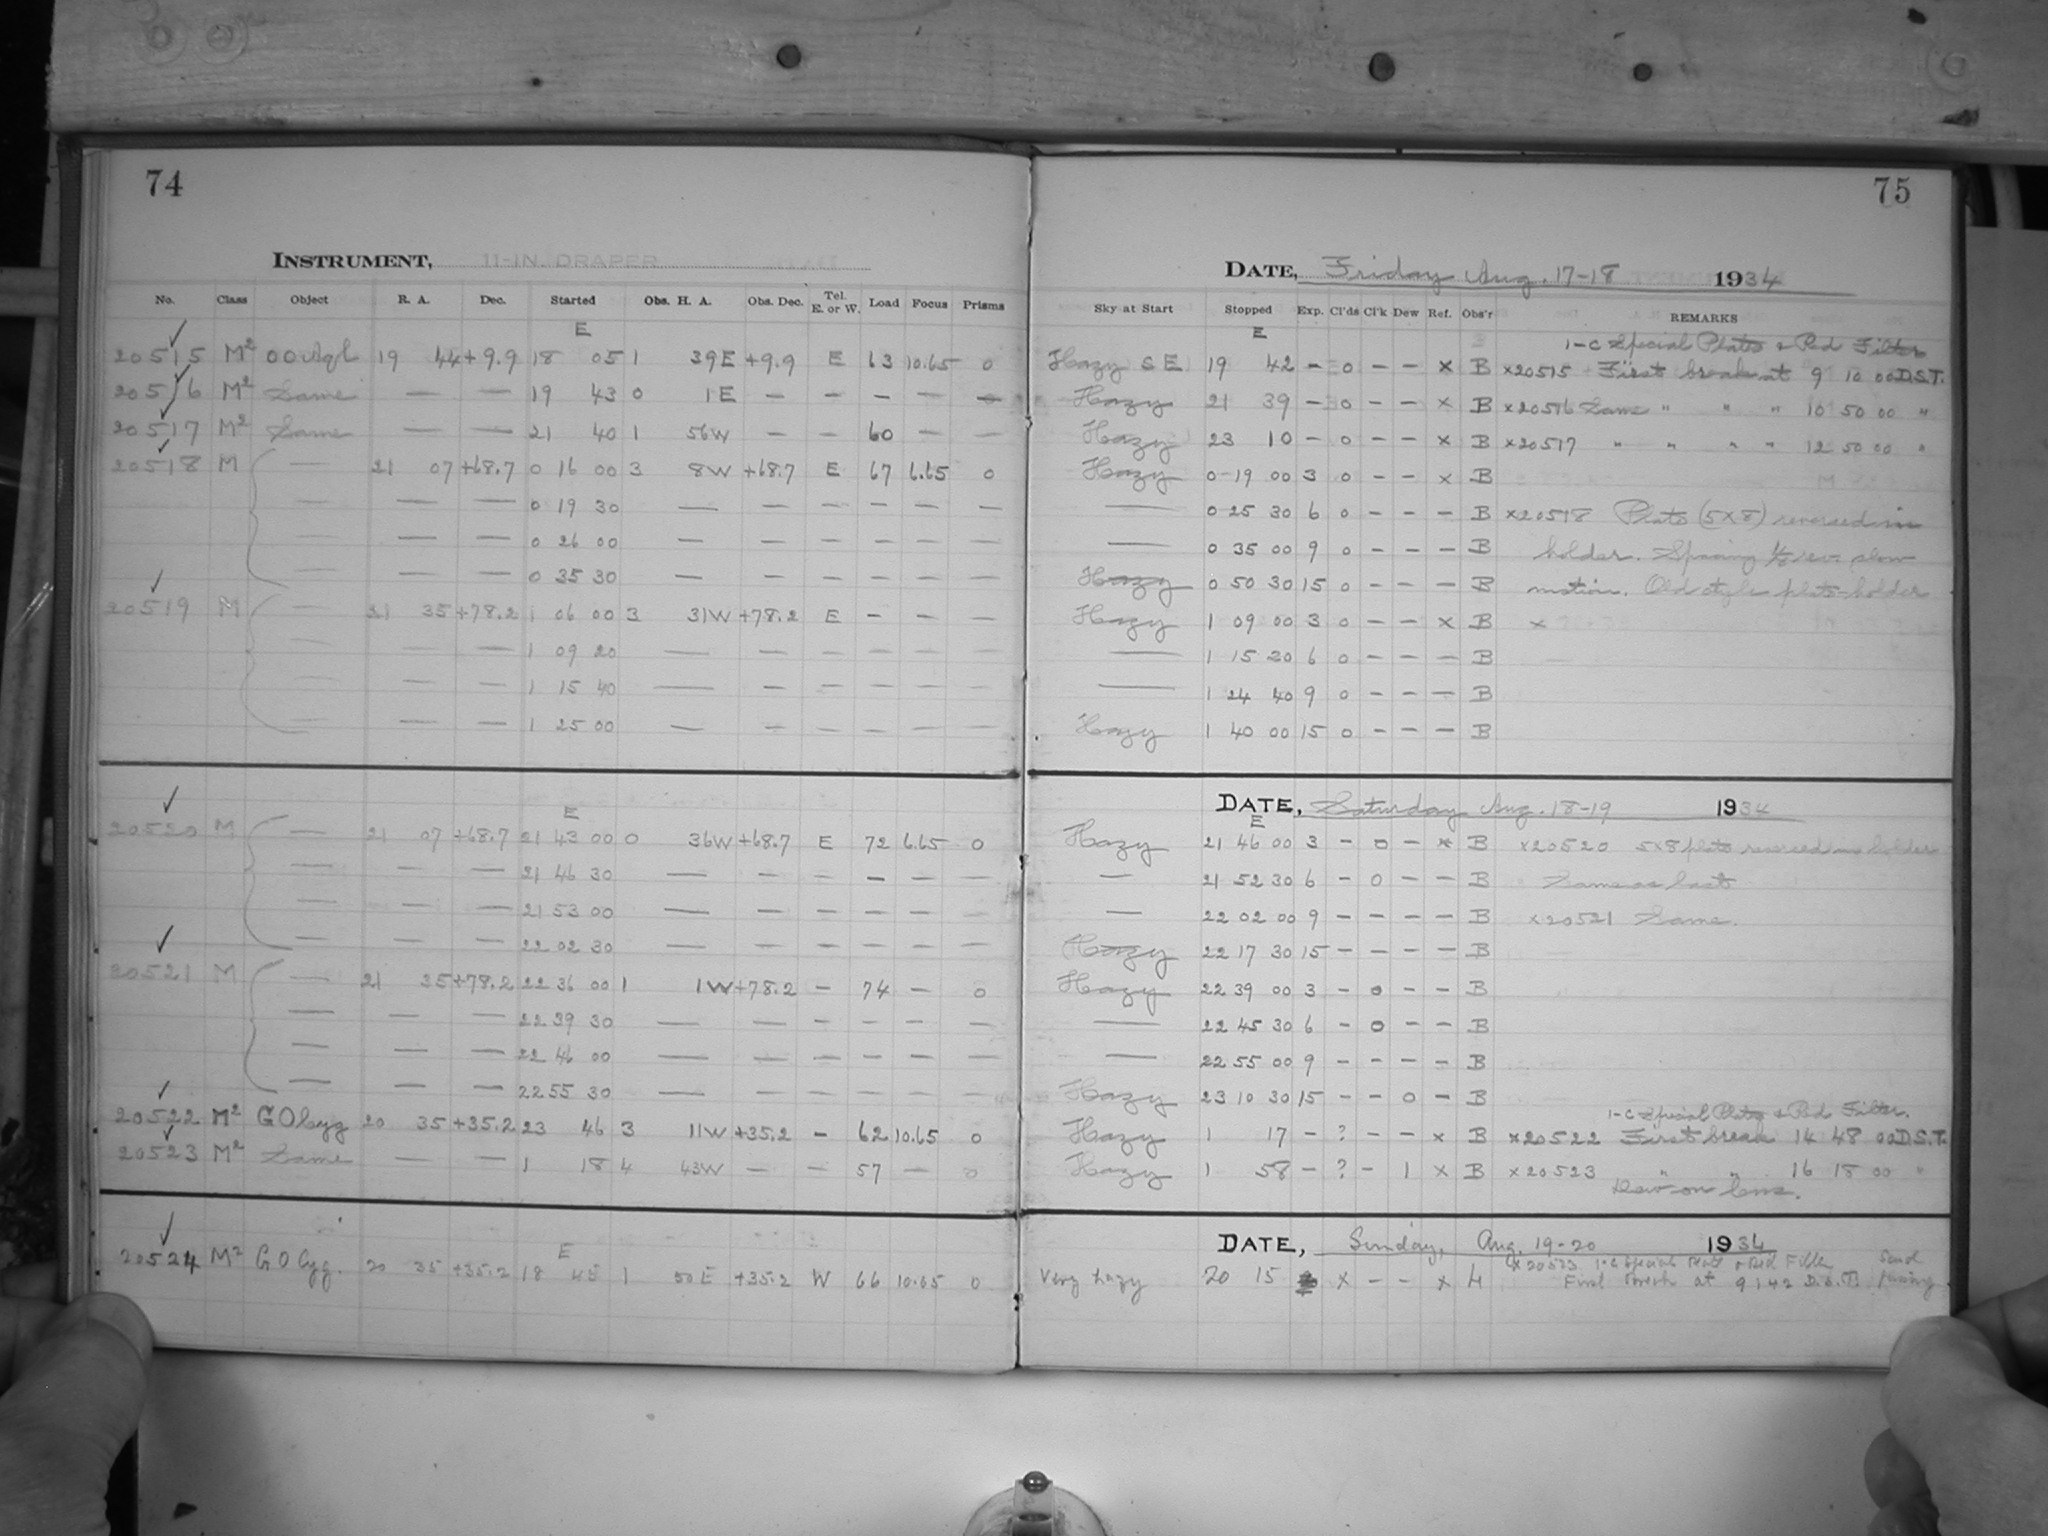 74
INSTRUMENT, 11-IN. DRAPER
No. Class Object R. A. Dec. Started Obs. H. A. Obs. Dec. Tel. E. or W. Load Focus Prisms
E
20515 M² 00 Aql 19 44 +9.9 18 05 1 39E +9.9 E 63 10.65 0
20516 M² Same — — 19 43 0 1E — — — — —
20517 M² Same — — 21 40 1 56W — — 60 — —
20518 M — 21 07 +68.7 0 16 00 3 8W +68.7 E 67 6.65 0
— — — 0 19 30 — — — — — —
— — — 0 26 00 — — — — — —
— — — 0 35 30 — — — — — —
20519 M — 21 35 +78.2 1 06 00 3 31W +78.2 E — — —
— — — 1 09 20 — — — — — —
— — — 1 15 40 — — — — — —
— — — 1 25 00 — — — — — —
E
20520 M — 21 07 +68.7 21 43 00 0 36W +68.7 E 72 6.65 0
— — — 21 46 30 — — — — — —
— — — 21 53 00 — — — — — —
— — — 22 02 30 — — — — — —
20521 M — 21 35 +78.2 22 36 00 1 1W +78.2 — 74 — 0
— — — 22 39 30 — — — — — —
— — — 22 46 00 — — — — — —
— — — 22 55 30 — — — — — —
20522 M² G0 Cyg 20 35 +35.2 23 46 3 11W +35.2 — 62 10.65 0
20523 M² Same — — 1 18 4 43W — — 57 — 0
E
20524 M² G0 Cyg. 20 35 +35.2 18 45 1 50E +35.2 W 66 10.65 0
75
DATE, Friday Aug. 17-18 1934
Sky at Start Stopped Exp. Cl'ds Cl'k Dew Ref. Obs'r REMARKS
E
1-C Special Plate & Red Filter
Hazy SE 19 42 — 0 — — x B x20515 First break at 9 10 00 D.S.T.
Hazy 21 39 — 0 — — x B x20516 Same " " " 10 50 00 "
Hazy 23 10 — 0 — — x B x20517 " " " " 12 50 00 "
Hazy 0 19 00 3 0 — — x B
— 0 25 30 6 0 — — — B x20518 Plate (5x8) reversed in
— 0 35 00 9 0 — — — B holder. Spacing ½ rev. slow
Hazy 0 50 30 15 0 — — — B motion. Old style plate-holder
Hazy 1 09 00 3 0 — — x B x
— 1 15 20 6 0 — — — B
— 1 24 40 9 0 — — — B
Hazy 1 40 00 15 0 — — — B
DATE, Saturday Aug. 18-19 1934
E
Hazy 21 46 00 3 — 0 — x B x20520 5x8 plate reversed in holder
— 21 52 30 6 — 0 — — B Same as last
— 22 02 00 9 — — — — B x20521 Same.
Hazy 22 17 30 15 — — — — B
Hazy 22 39 00 3 — 0 — — B
— 22 45 30 6 — 0 — — B
— 22 55 00 9 — — — — B
Hazy 23 10 30 15 — — 0 — B
1-C Special Plate & Red Filter.
Hazy 1 17 — ? — — x B x20522 First break 14 48 00 D.S.T.
Hazy 1 58 — ? — 1 x B x20523 " " 16 18 00 "
Dew on lens.
DATE, Sunday, Aug. 19-20 1934
1-C Special Plate & Red Filter
Very hazy 20 15 x — — x H First break at 9:42 D.S.T.